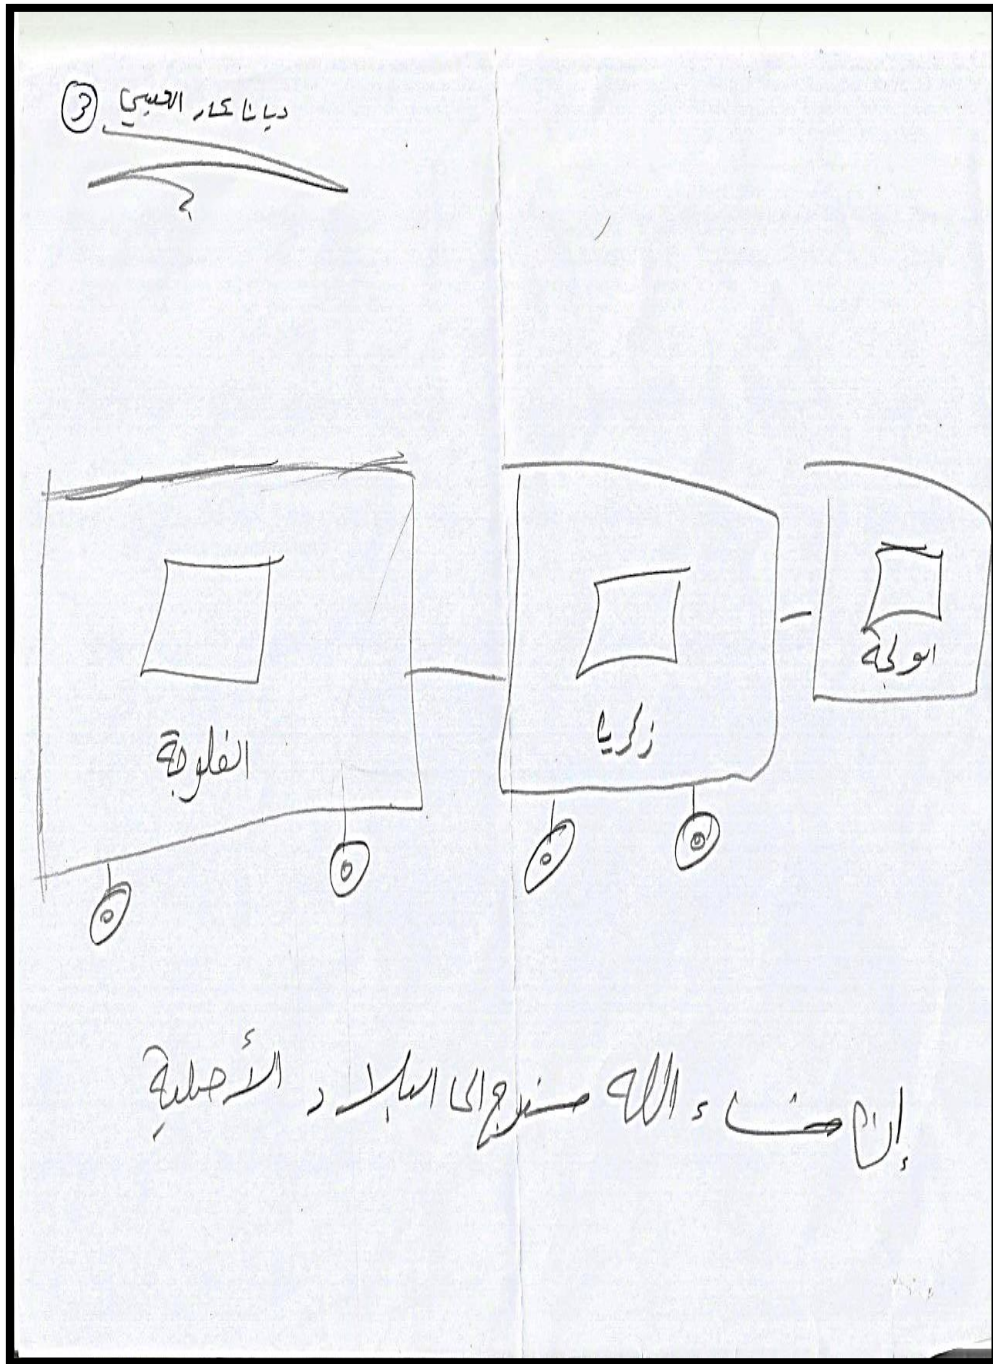 ديانا عمار الحسي ③
ابو لحة
زكريا
الفلوجة
إن شاء الله سنرجع الى البلاد الأصلية